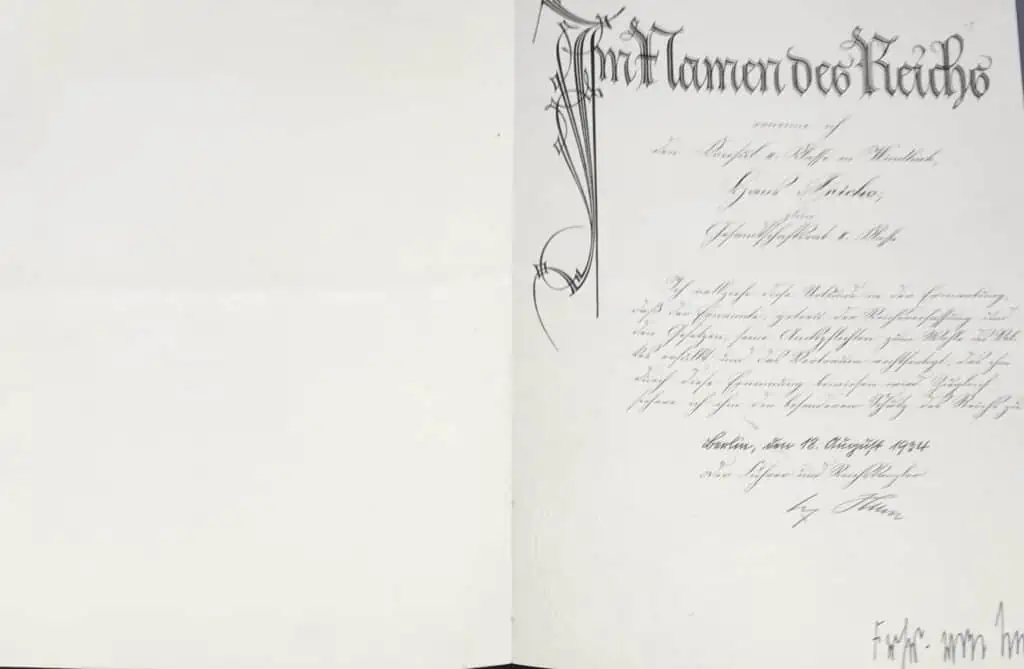 Im Namen des Reichs
ernenne ich
den Konsul II. Klasse in Windhuk,
Hans
zum
Gesandtschaftsrat II. Klasse.
Ich vollziehe diese Urkunde in der Erwartung,
daß der Ernannte, getreu der Reichsverfassung und
den Gesetzen, seine Amtspflichten zum Wohle des Vol-
kes erfüllt und das Vertrauen rechtfertigt, das ihm
durch diese Ernennung bewiesen wird. Zugleich
sichere ich ihm den besonderen Schutz des Reichs zu.
Berlin, den 12. August 1934
Der Führer und Reichskanzler
Frhr. von